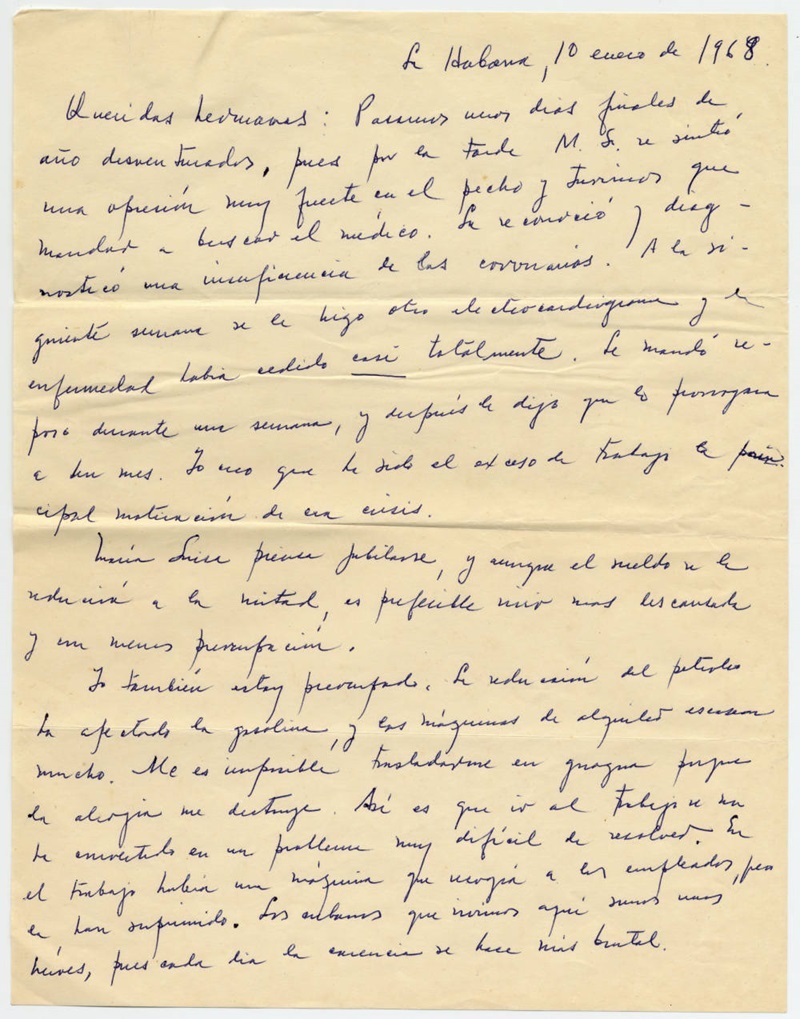 La Habana, 10 enero de 1968.
Queridas hermanas: Pasamos unos días finales de
año desventurados, pues por la tarde M. L. se sintió
una opresión muy fuerte en el pecho y tuvimos que
mandar a buscar el médico. La reconoció y diag-
nosticó una insuficiencia de las coronarias. A la si-
guiente semana se le hizo otro electrocardiograma y la
enfermedad había cedido casi totalmente. Le mandó re-
poso durante una semana, y después le dijo que lo prorrogara
a un mes. Yo creo que ha sido el exceso de trabajo la prin-
cipal motivación de esa crisis.
María Luisa piensa jubilarse, y aunque el sueldo se le
reducirá a la mitad, es preferible vivir mas descansada
y con menos preocupación.
Yo también estoy preocupado. La reducción del petroleo
ha afectado la gasolina, y las máquinas de alquiler escasean
mucho. Me es imposible trasladarme en guagua porque
la alergia me destruye. Así es que ir al trabajo se me
ha convertido en un problema muy difícil de resolver. En
el trabajo había una máquina que recogía a los empleados, pero
la han suprimido. Los cubanos que vivimos aquí somos unos
héroes, pues cada día la carencia se hace más brutal.